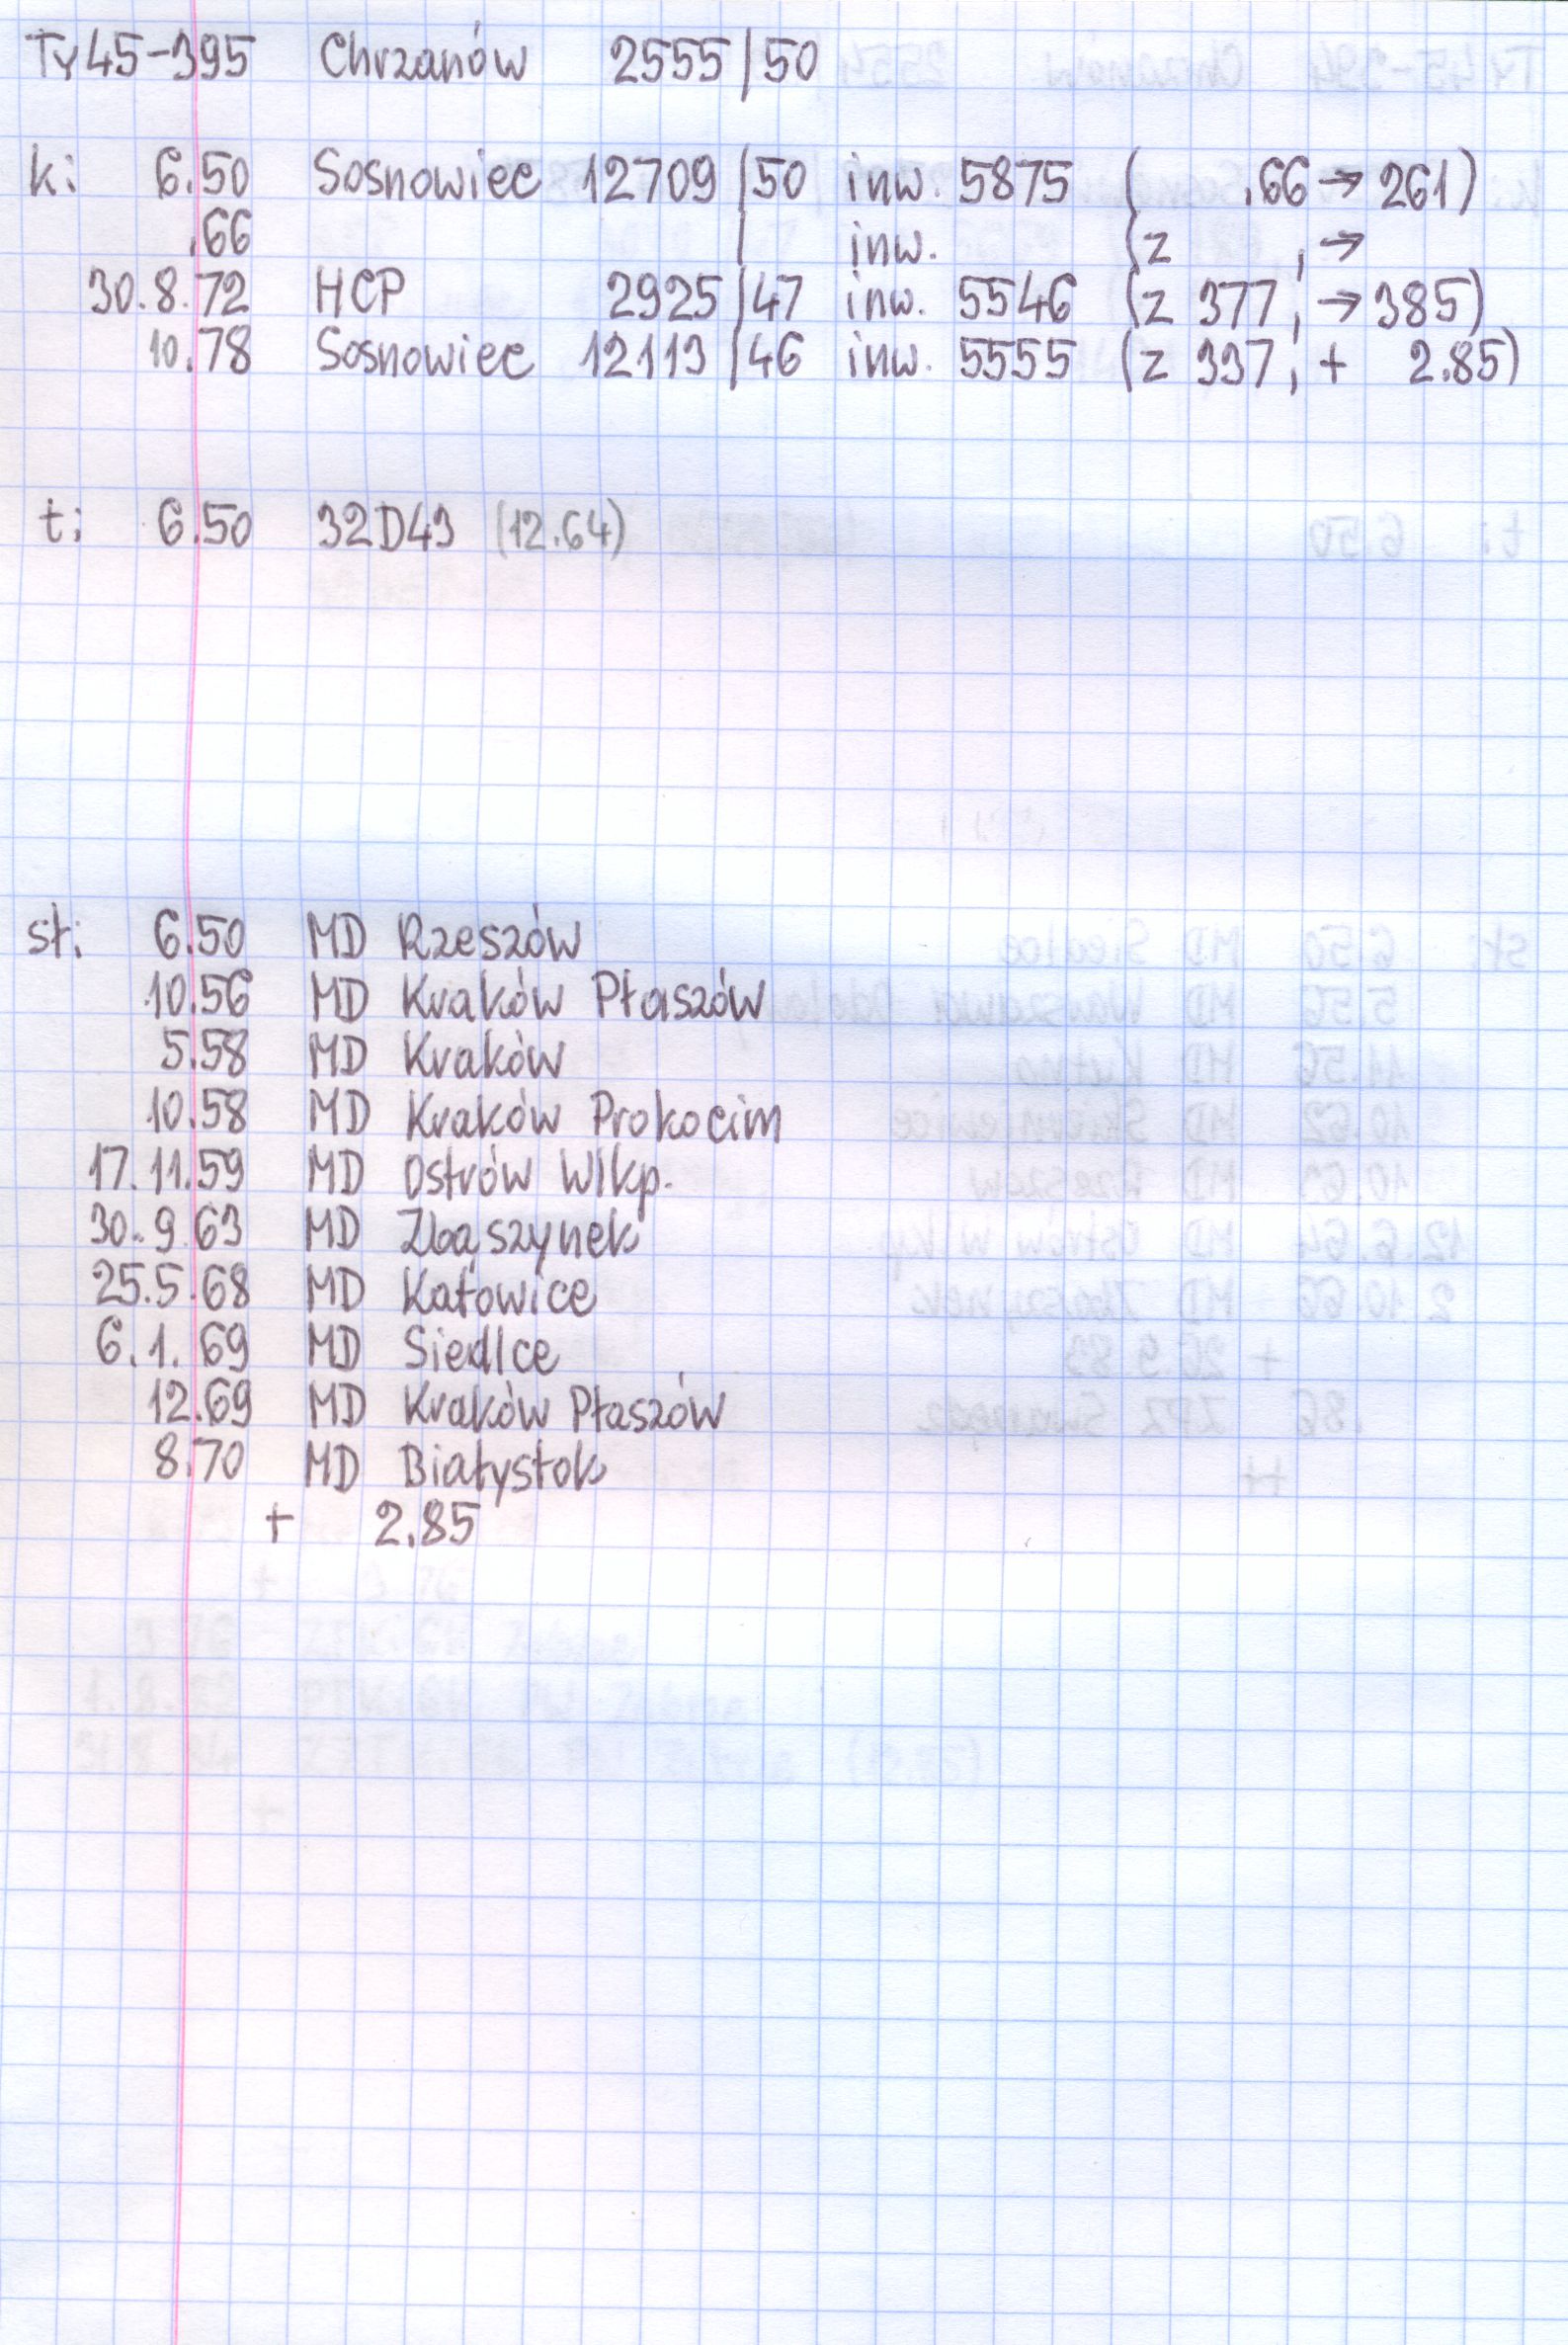 Ty45-395 Chrzanów 2555/50
k: 6.50 Sosnowiec 12709/50 inw. 5875 ( .66 → 261)
.66 / inw. (z ; →
30.8.72 HCP 2925/47 inw. 5546 (z 377; → 385)
10.78 Sosnowiec 12113/46 inw. 5555 (z 337; + 2.85)
t: 6.50 32D43 (12.64)
st: 6.50 MD Rzeszów
10.56 MD Kraków Płaszów
5.58 MD Kraków
10.58 MD Kraków Prokocim
17.11.59 MD Ostrów Wlkp.
30.9.63 MD Zbąszynek
25.5.68 MD Katowice
6.1.69 MD Siedlce
12.69 MD Kraków Płaszów
8.70 MD Białystok
+ 2.85